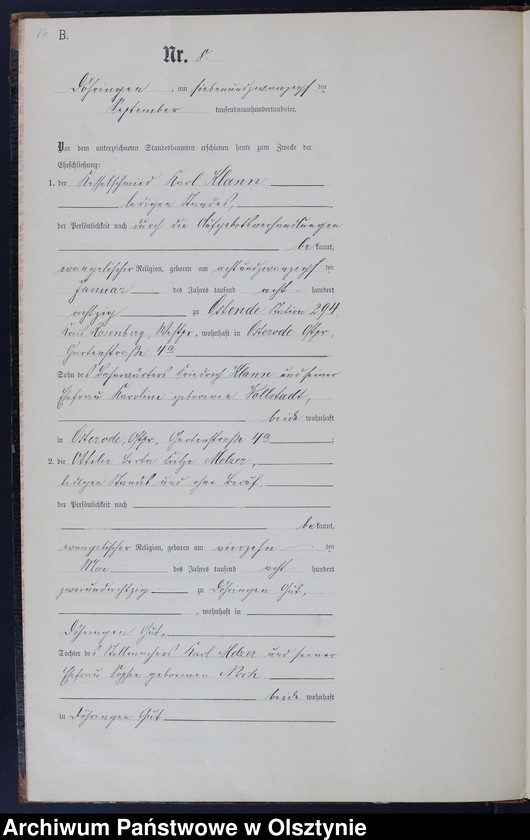 B.
Nr. 8.
Döhringen, am siebenundzwanzigsten
September tausendneunhundertundvier.
Vor dem unterzeichneten Standesbeamten erschienen heute zum Zwecke der
Eheschließung:
1. der Kesselschmied Karl Klann
ledigen Standes,
der Persönlichkeit nach durch die Aufgebotsverhandlungen
bekannt,
evangelischer Religion, geboren am achtundzwanzigsten
Januar des Jahres tausend acht- hundert
achtzig zu Ostende Station 294,
Kreis Rosenberg, Westpr., wohnhaft in Osterode Ostpr.,
Gartenstraße 4a
Sohn des Bahnwärters Friedrich Klann und seiner
Ehefrau Karoline geborene Vollstadt,
beide wohnhaft
in Osterode, Ostpr., Gartenstraße 4a;
2. die Ottilie Berta Melzer,
ledigen Standes und ohne Beruf,
der Persönlichkeit nach
bekannt,
evangelischer Religion, geboren am vierzehnten
Mai des Jahres tausend acht hundert
zweiundachtzig zu Döhringen Gut,
, wohnhaft in
Döhringen Gut,
Tochter des Stellmachers Karl Melzer und seiner
Ehefrau Sophie geborenen
beide wohnhaft
in Döhringen Gut
Archiwum Państwowe w Olsztynie